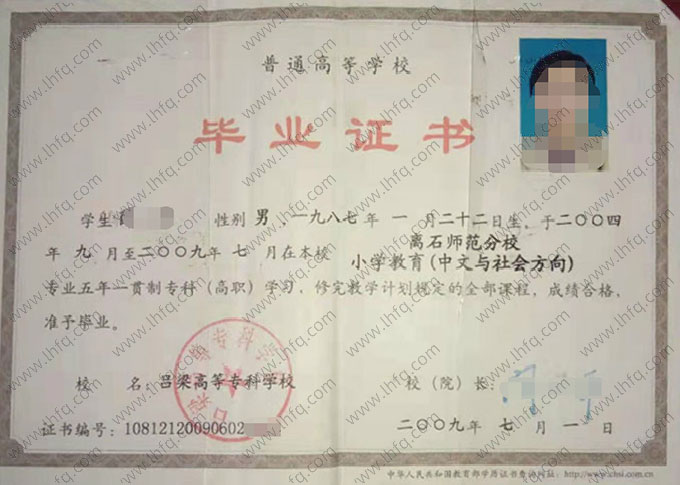 普通高等学校
毕业证书
学生 性别 男，一九八七年 一 月二十二日生，于二〇〇四
年 九 月至二〇〇九年 七 月在本校 离石师范分校
小学教育(中文与社会方向)
专业五年一贯制专科（高职）学习，修完教学计划规定的全部课程，成绩合格，
准予毕业。
校 名：吕梁高等专科学校 校（院）长：
证书编号：10812120090602
二〇〇九年 七 月 一 日
中华人民共和国教育部学历证书查询网址：http://www.chsi.com.cn
www.lhfq.com